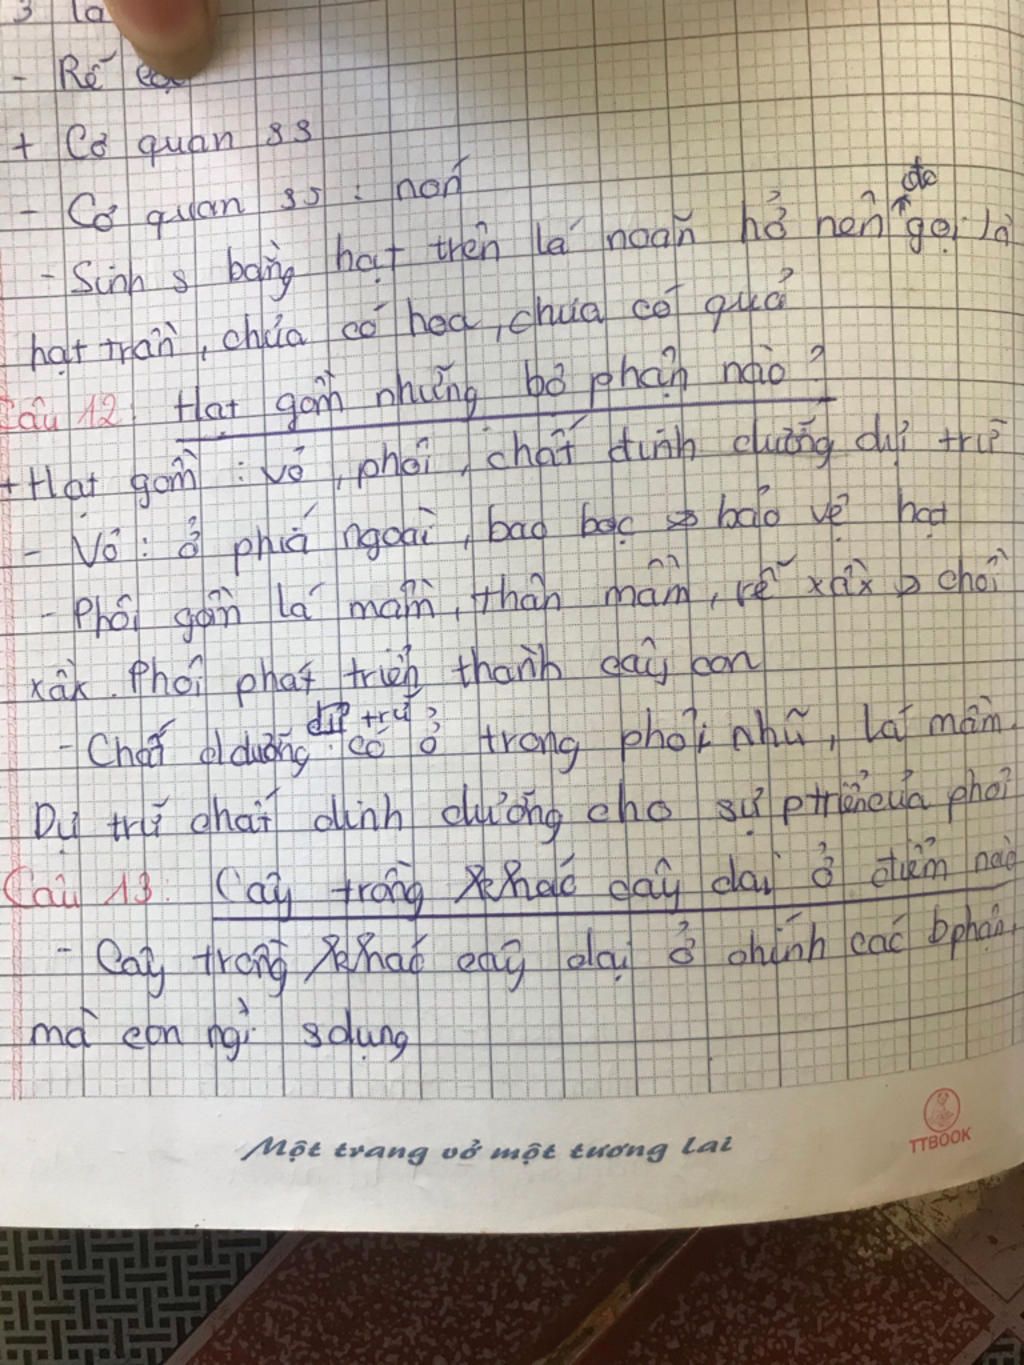 3 lá
- Rễ cọc
+ Cơ quan ss
- Cơ quan ss : nón
- Sinh s bằng hạt trên lá noãn hở nên đc gọi là
hạt trần, chưa có hoa, chưa có quả
Câu 12: Hạt gồm những bộ phận nào?
+ Hạt gồm : vỏ, phôi, chất dinh dưỡng dự trữ
- Vỏ : ở phía ngoài, bao bọc → bảo vệ hạt
- Phôi gồm lá mầm, thân mầm, rễ mầm, chồi
mầm. Phôi phát triển thành cây con
- Chất d dưỡng dự trữ có ở trong phôi nhũ, lá mầm.
Dự trữ chất dinh dưỡng cho sự ptriển của phôi
Câu 13: Cây trồng khác cây dại ở điểm nào
- Cây trồng khác cây dại ở chính các bphận
mà con ng` sdụng
Một trang vở một tương lai
TTBOOK